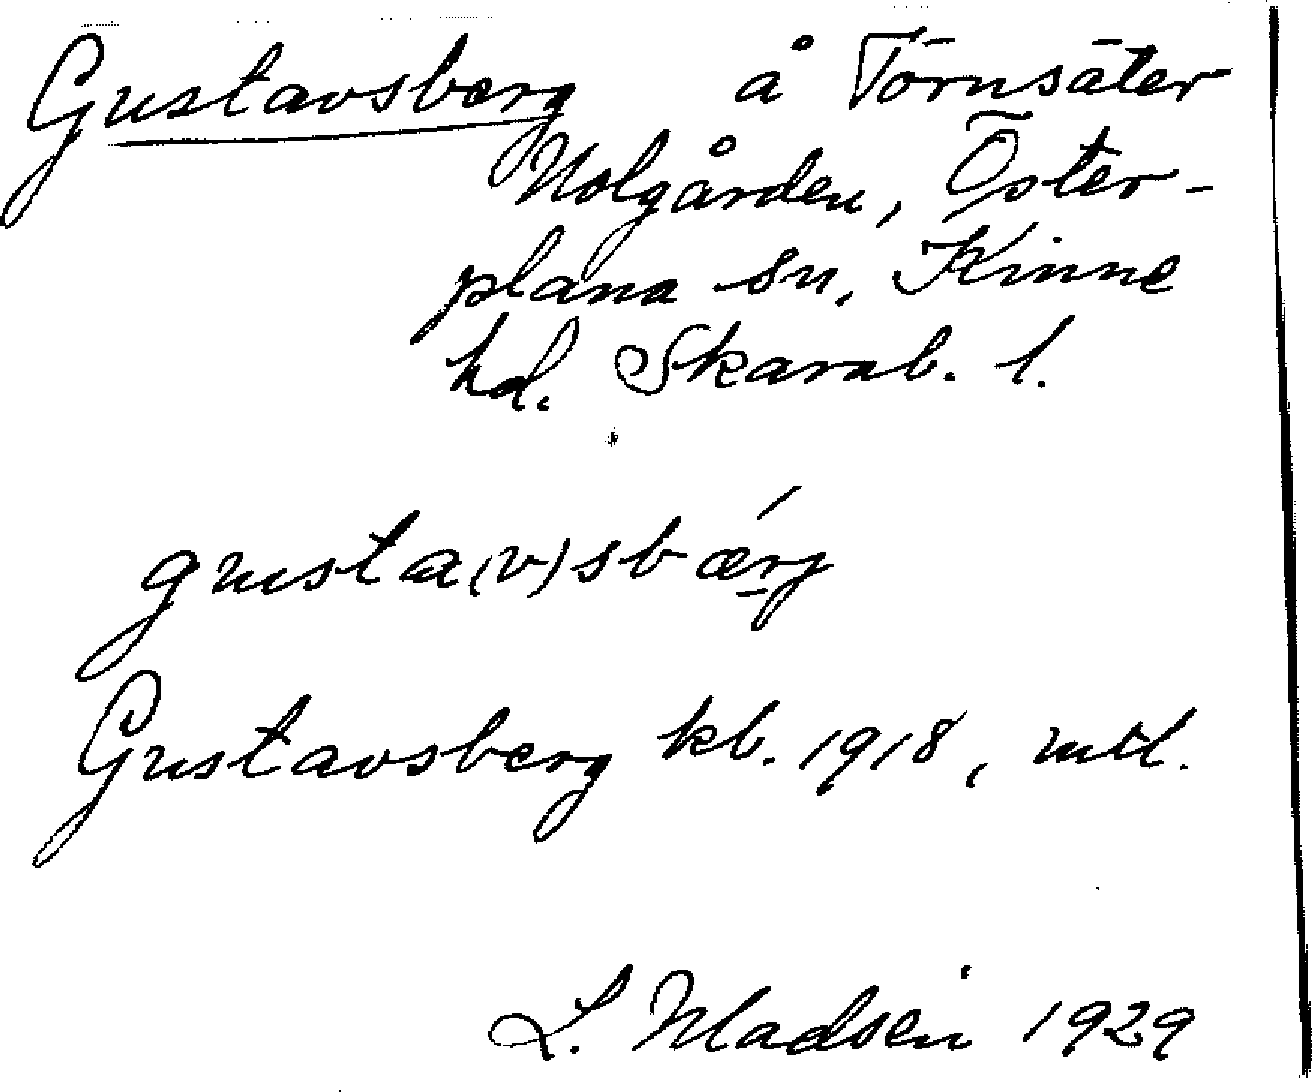 Gustavsberg å Törnsäter
Nolgården, Öster-
plana sn, Kinne
hd. Skarab. l.
gusta(v)sbærj
Gustavsberg kb. 1918, mtl.
L. Madsén 1929